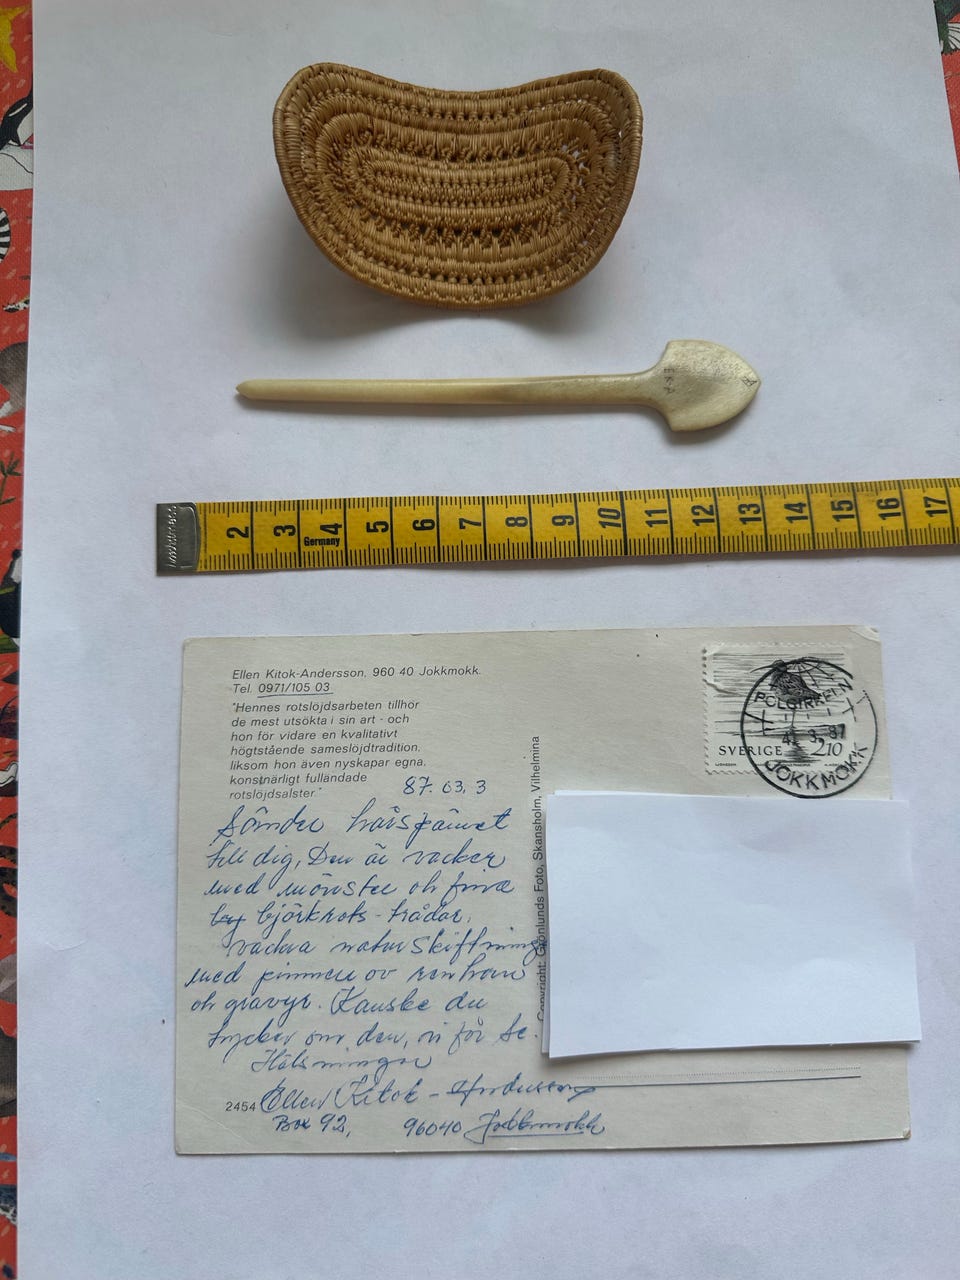 EKA
2 3 4 5 6 7 8 9 10 11 12 13 14 15 16 17
Germany
Ellen Kitok-Andersson, 960 40 Jokkmokk.
Tel. 0971/105 03
"Hennes rotslöjdsarbeten tillhör
de mest utsökta i sin art - och
hon för vidare en kvalitativt
högtstående sameslöjdtradition,
liksom hon även nyskapar egna,
konstnärligt fulländade
rotslöjdsalster."
87. 03, 3
Sänder hårspännet
till dig, Den är vacker
med mönster oh fina
björkrots-trådar,
vackra naturskiftning
med pinnen av renhorn
oh gravyr. Kanske du
tycker om den, vi får se.
Hälsningar
2454 Ellen Kitok-Andersson
Box 92, 96040 Jokkmokk
Copyright: Grönlunds Foto, Skansholm, Vilhelmina
SVERIGE 210
POLCIRKELN
4. 3. 87
JOKKMOKK